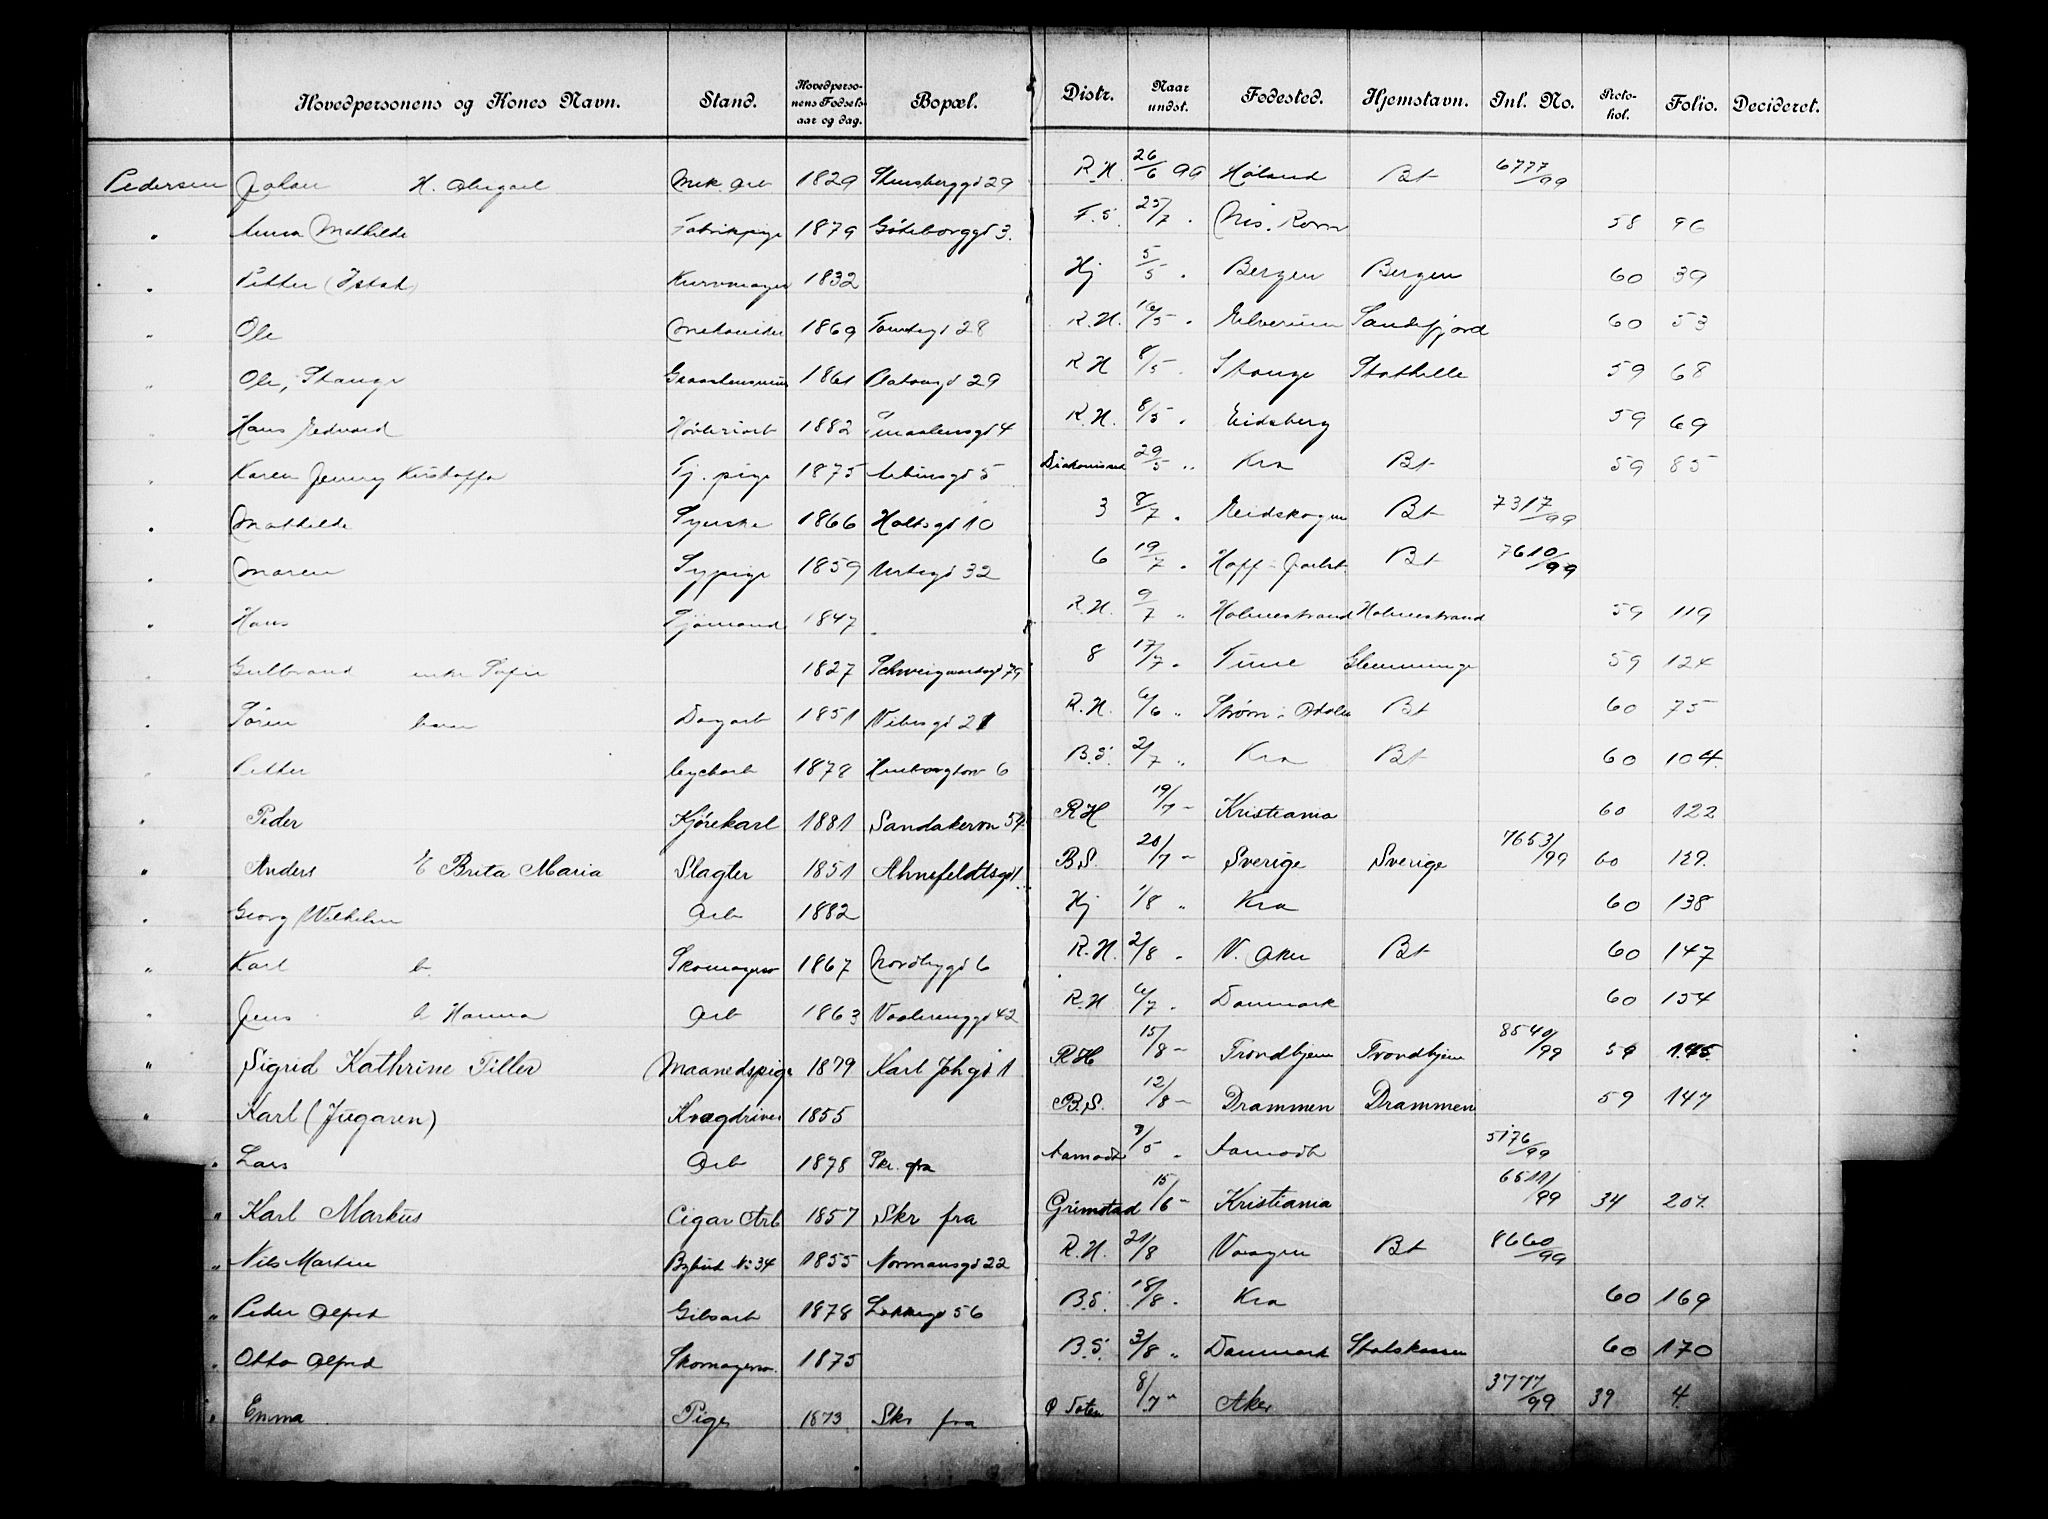 Hovedpersonens og Kones Navn. Stand. Hovedpersonens Fødselsaar og dag. Bopæl. Distr. Naar undst. Fødested. Hjemstavn. Inl. No. Protokol. Folio. Decideret.
Pedersen Johan H. Abigael Mek. Arb 1829 29 R.H. 26/6 99 Høland Bt 6777/99
" Anna Mathilde Fabrikpige 1879 Göteborggd 3. F.S. 25/7 " 58 96
" Petter Kurvmager 1832 Hj 5/5 " Bergen Bergen 60 39
" Ole Mekaniker 1869 Tomtegd 28 R.H. 16/5 " Elverum Sandefjord 60 53
" Ole, Stange 1861 29 R H 8/5 " Stange Stathelle 59 68
" Hans Edvard Høvleriarb 1882 Smaalensgd 4 R.H. 8/5 " Eidsberg 59 69
" Karen Jenny Tj. pige 1875 5 29/5 " Kra Bt 59 85
" Mathilde Syerske 1866 Holtsgd 10 3 8/7 " Eidskogen Bt 7317/99
" Maren Sypige 1859 Urtegd 32 6 19/7 " Bt 7610/99
" Hans Sjømand 1847 " R.H. 9/7 " Holmestrand Holmestrand 59 119
" Gulbrand enke Sofie 1827 Schweigaardsgd 79 8 17/7 " Tune Glemminge 59 124
" Søren Dagarb 1851 Vibesgd 21 R.H. 6/6 " Strøm i Odalen Bt 60 75
" Petter 1878 6 B.S. 2/7 " Kra Bt 60 104
" Peder Kjørekarl 1881 RH 19/7 - Kristiania 60 122
" Anders E Brita Maria Slagter 1851 Ahnefeldtsgd 1. B.S. 20/7 - Sverige Sverige 7653/99 60 129.
" Georg Wilhelm Arb 1882 Hj 1/8 " Kra 60 138
" Karl Skomagersv 1867 Nordbygd 6 R.H. 2/8 " V. Aker Bt 60 147
" Jens Hanna Arb 1863 Vaalerenggd 42 R.H 6/7 . Danmark 60 154
" Sigrid Kathrine Tiller Maanedspige 1879 Karl Johgd 1 RH 15/8 - Trondhjem Trondhjem 8540/99 59 145
" Karl (Jugaren) Kvægdriver 1855 B.S. 12/8 - Drammen Drammen 59 147
" Lars Arb 1878 Skr. fra Aamodt 9/5 " Aamodt 5176/99
" Karl Markus Cigar Arb 1857 Skr fra Grimstad 15/6 - Kristiania 6511/99 34 207.
" Nils Martin Bybud No 34 1855 Normansgd 22 R.H. 21/8 Vaagen Bt 8660/99
" Peder Alfred Gibsarb 1878 Løkkegd 56 B.S. 18/8 . Kra 60 169
" Otto Alfred Skomagersv. 1875 B.S. 3/8 " Danmark Statskassen 60 170
" Emma Pige 1873 Skr fra Ø Toten 8/7 " Aker 3777/99 39 4